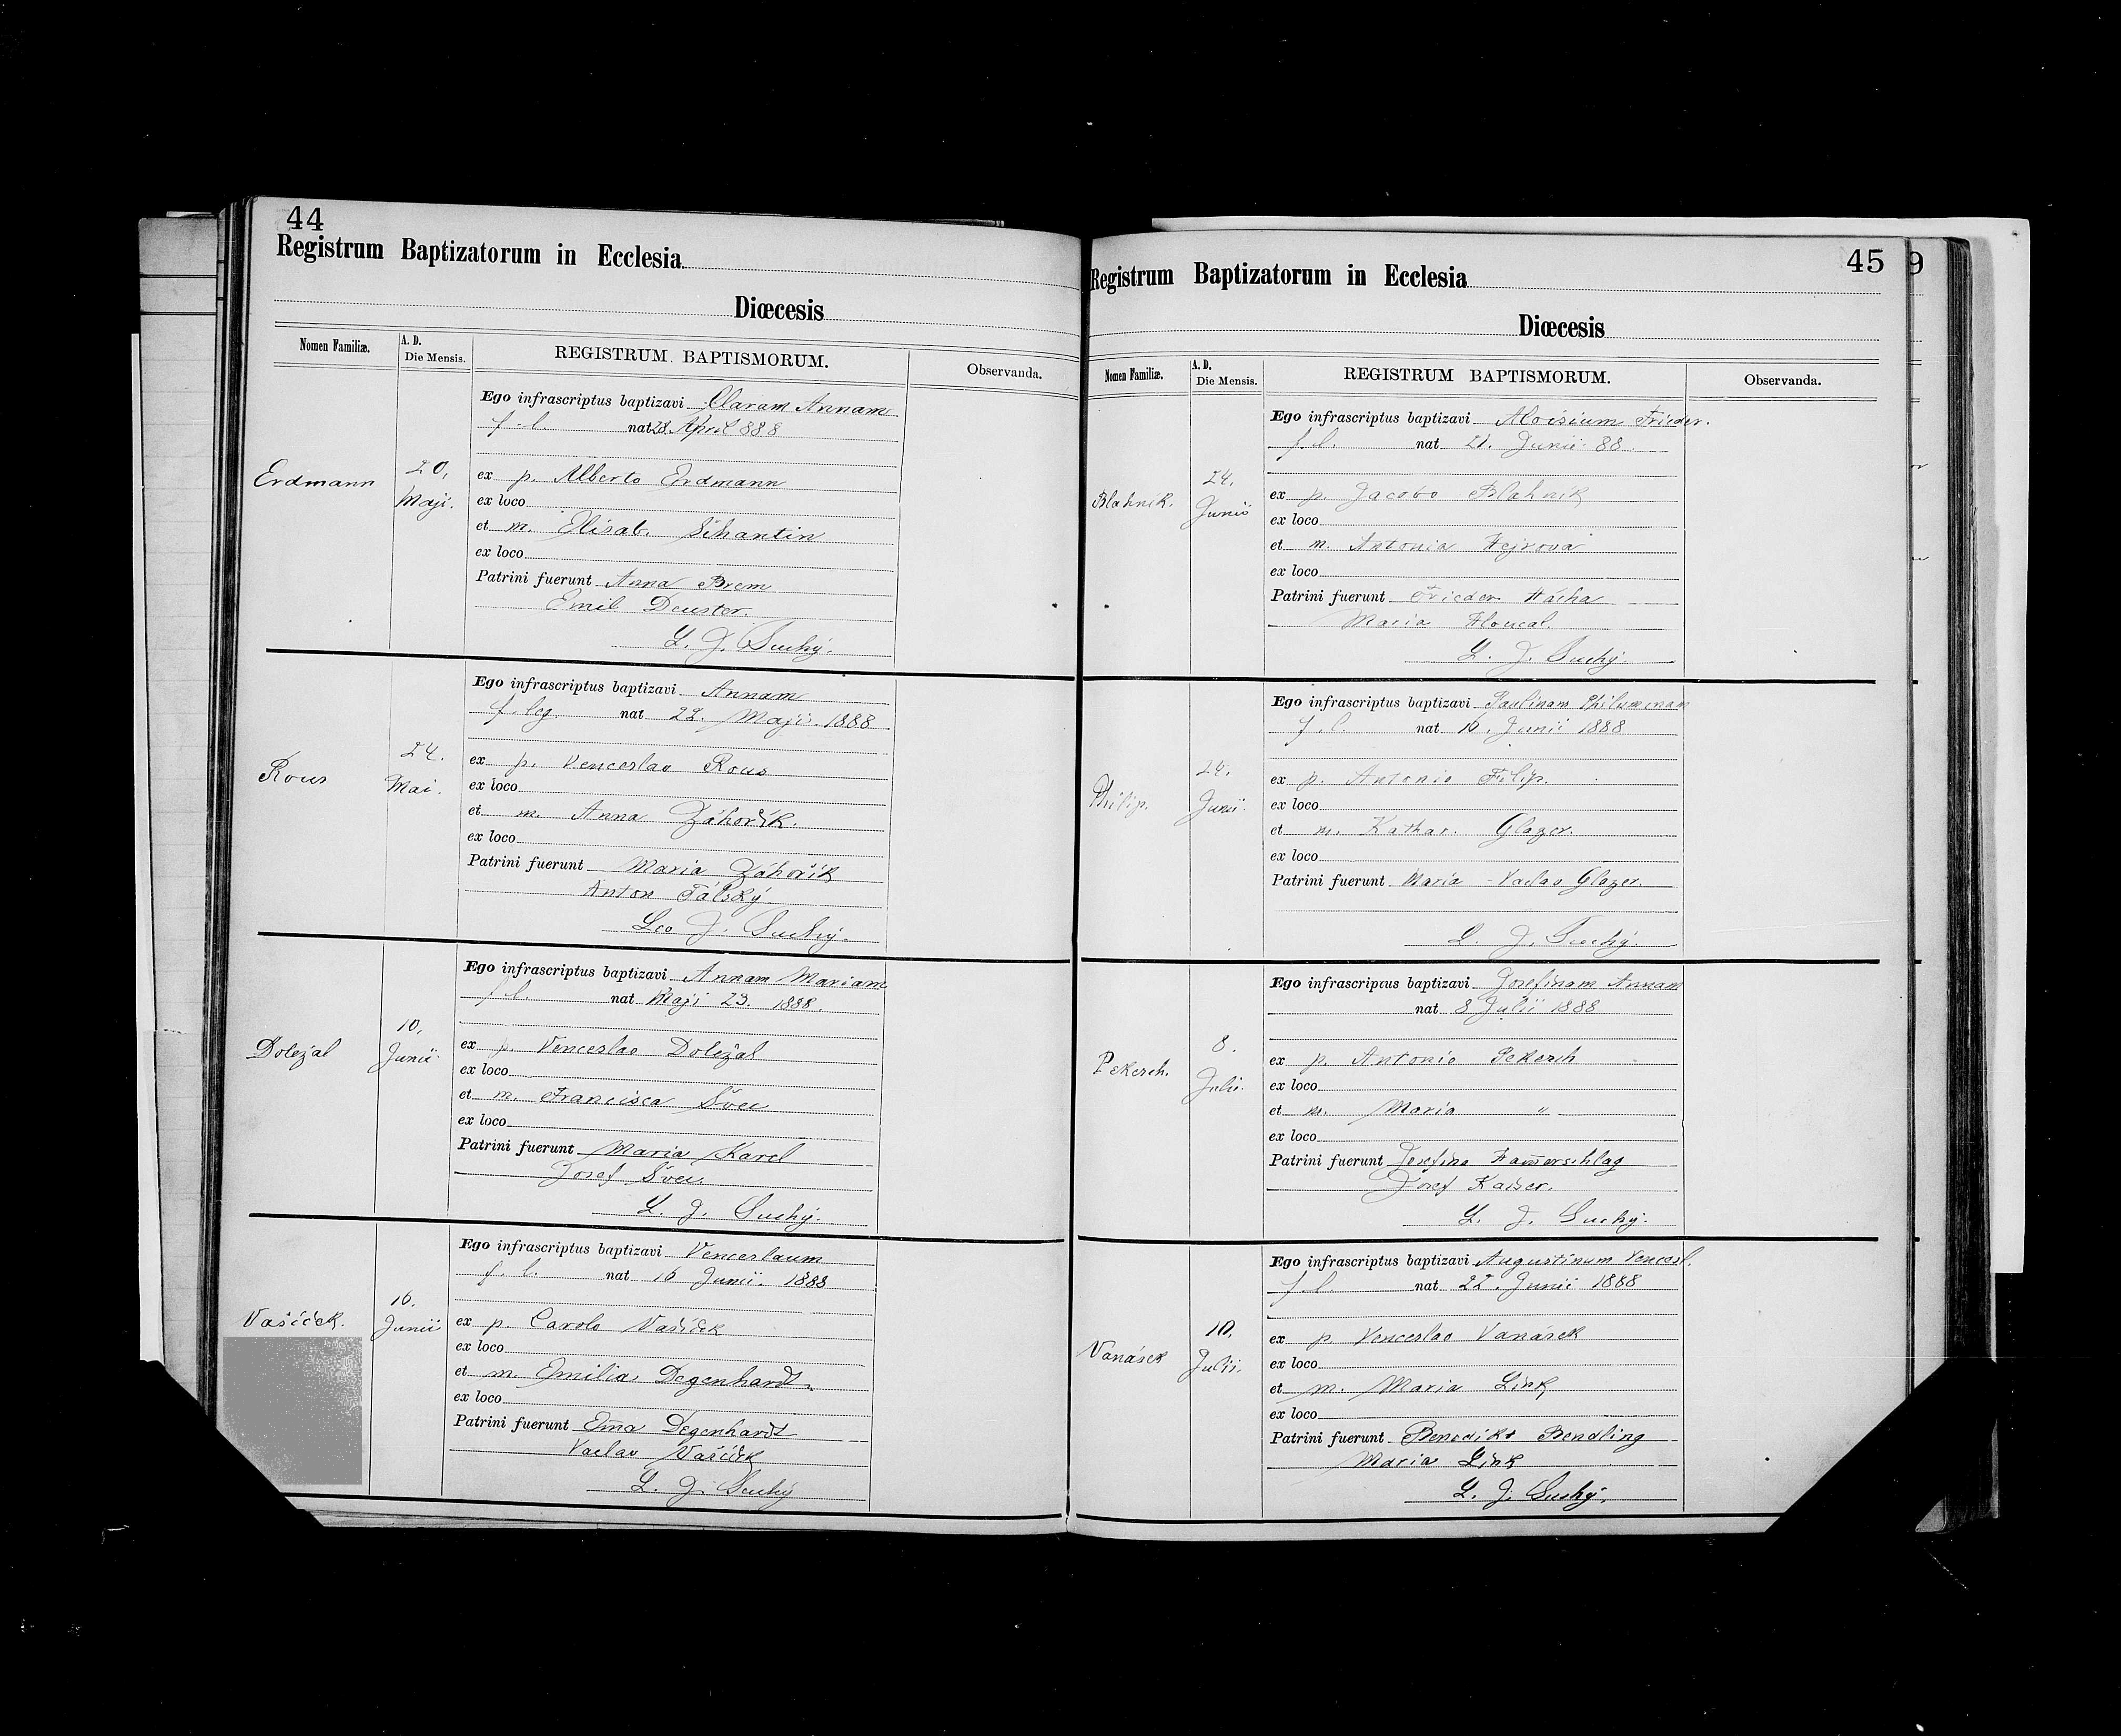 44
Registrum Baptizatorum in Ecclesia
Diœcesis
Nomen Familiæ.
A. D.
Die Mensis.
REGISTRUM BAPTISMORUM.
Observanda.
Erdmann
20.
Maji.
Ego infrascriptus baptizavi Claram Annam
f. l. nat 28. April 888
ex p. Alberto Erdmann
ex loco
et m. Elisab. Schantin
ex loco
Patrini fuerunt Anna Brem
Emil Deuster.
L. J. Suchý.
Rous
24.
Mai.
Ego infrascriptus baptizavi Annam
f. leg. nat 22. Maji. 1888
ex p. Venceslao Rous
ex loco
et m. Anna Záhořík.
ex loco
Patrini fuerunt Maria Záhořík
Anton Tálský
Leo J. Suchý.
Doležal
10.
Junii.
Ego infrascriptus baptizavi Annam Mariam
f. l. nat Maji 23. 1888.
ex p. Venceslao Doležal
ex loco
et m. Francisca Švec
ex loco
Patrini fuerunt Maria Karel
Josef Švec.
L. J. Suchý.
Vašíček.
16.
Junii
Ego infrascriptus baptizavi Venceslaum
f. l. nat 16 Junii. 1888
ex p. Carolo Vašíček
ex loco
et m. Emilia Degenhardt
ex loco
Patrini fuerunt Em̅a Degenhardt
Vaclav Vašíček
L. J. Suchý
45
9
Registrum Baptizatorum in Ecclesia
Diœcesis
Nomen Familiæ.
A. D.
Die Mensis.
REGISTRUM BAPTISMORUM.
Observanda.
Blahnik.
24.
Junii
Ego infrascriptus baptizavi Aloisium Frieder.
f. l. nat 21. Junii 88.
ex p. Jacobo Blahník
ex loco
et m. Antonia Hejrova
ex loco
Patrini fuerunt Frieder. Hácha
Maria Hloucal.
L. J. Suchý.
Philip.
24.
Junii.
Ego infrascriptus baptizavi Paulinam Philumenam
f. l. nat 16. Junii 1888
ex p. Antonio Filip.
ex loco
et m. Kathar. Glazer.
ex loco
Patrini fuerunt Maria - Vaclav Glazer.
L. J. Suchý.
Pekarch.
8.
Julii.
Ego infrascriptus baptizavi Josefinam Annam
nat 8 Julii 1888
ex p. Antonio Pekarch
ex loco
et m. Maria "
ex loco
Patrini fuerunt Josefina Ham̅erschlag
Josef Kaiser.
L. J. Suchý.
Vanásek
10.
Julii.
Ego infrascriptus baptizavi Augustinum Vencesl.
f. l. nat 22. Junii 1888
ex p. Venceslao Vanásek
ex loco
et m. Maria Link
ex loco
Patrini fuerunt Benedikt Bendling
Maria Link
L. J. Suchý.